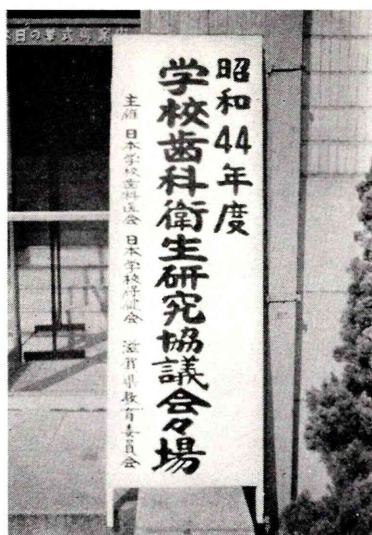 本日の挙式御案内
昭和44年度
学校歯科衛生研究協議会々場
主催 日本学校歯科医会 日本学校保健会 滋賀県教育委員会